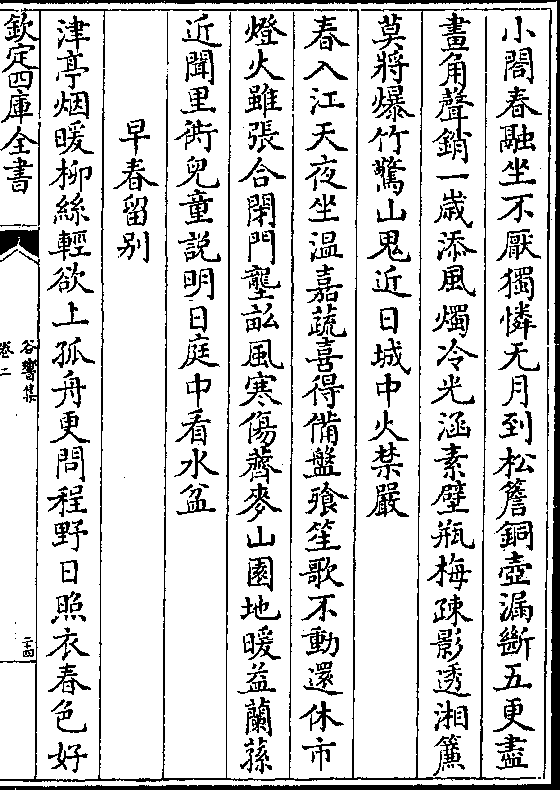 小閣春融坐不厭獨憐无月到松簷銅壺漏斷五更盡
畫角聲銷一歳添風燭冷光涵素壁瓶梅疎影透湘簾
莫將爆竹驚山鬼近日城中火禁嚴
春入江天夜坐温嘉蔬喜得備盤飱笙歌不動還休市
燈火雖張合閉門壟畝風寒傷薺麥山園地暖益蘭蓀
近聞里衖兒童説明日庭中看水盆
早春留别
津亭烟暖柳絲輕欲上孤舟更問程野日照衣春色好
欽定四庫全書
谷響集
卷二
二十四